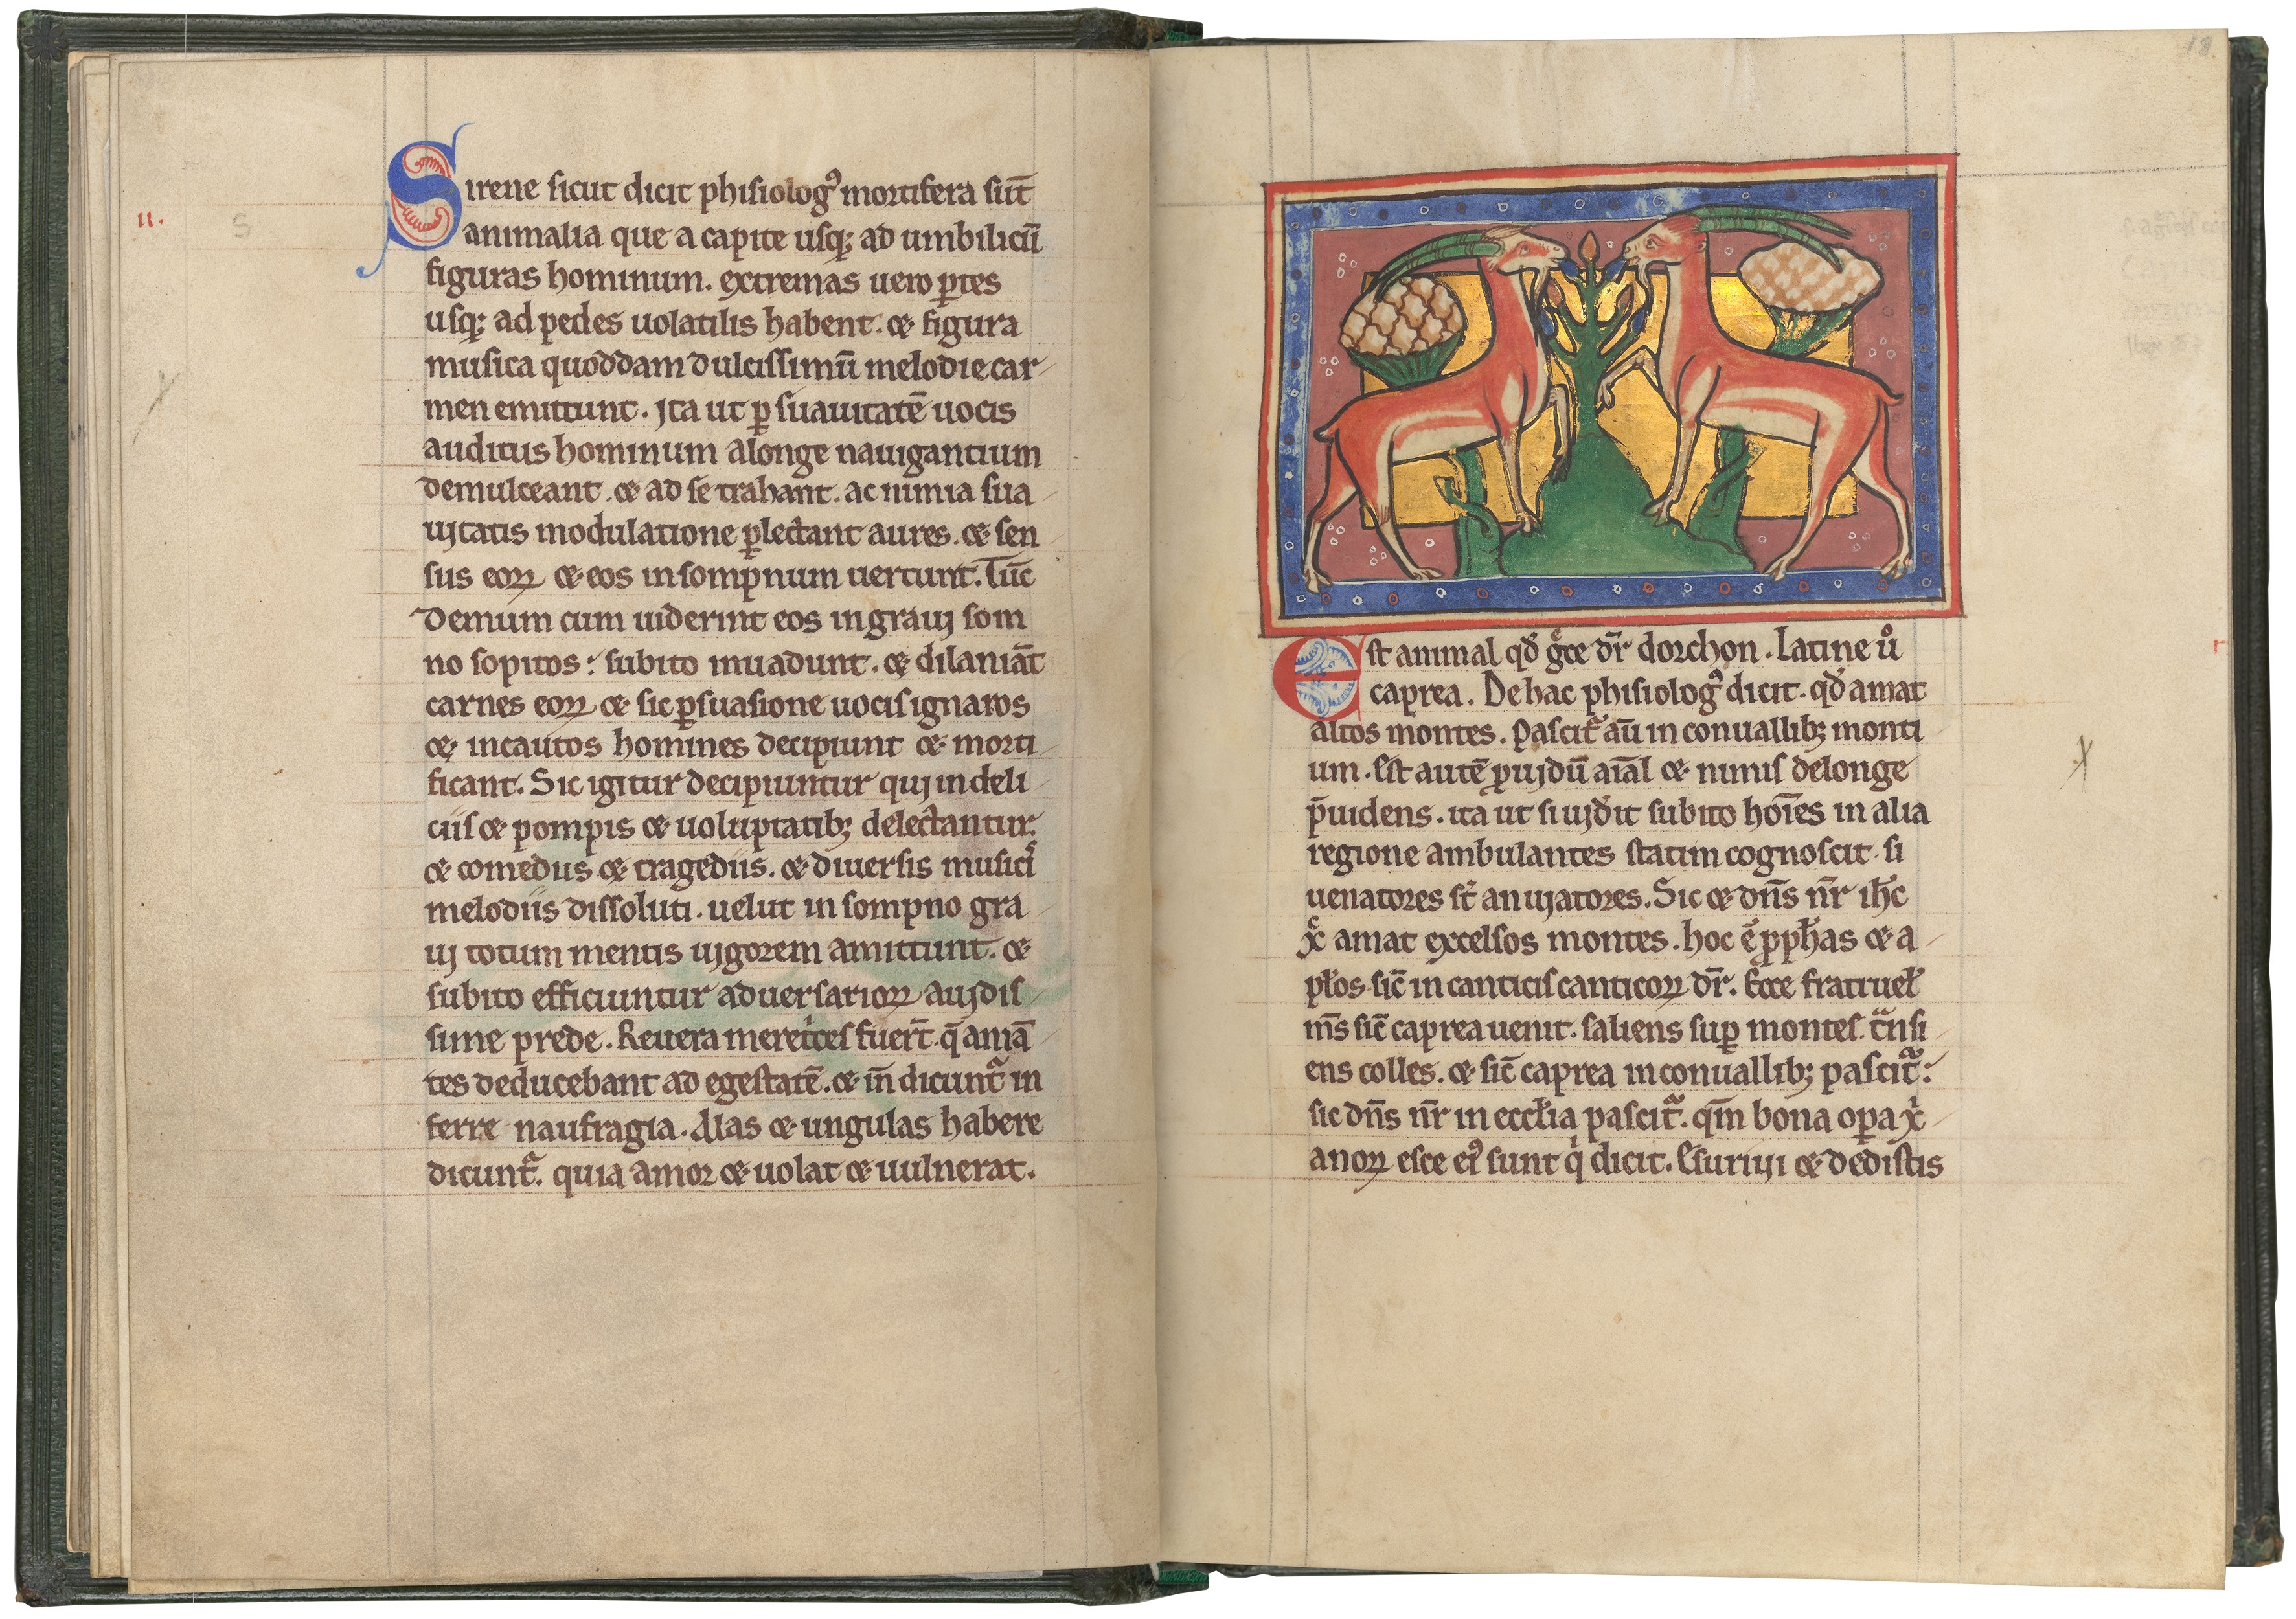 ii.
S
Sirene sicut dicit phisiologꝰ mortifera sūt
animalia que a capite usqꝫ ad umbilicū
figuras hominum. extremas uero ꝑtes
usqꝫ ad pedes uolatilis habent. et figura
musica quoddam dulcissimū melodie car
men emittunt. Ita ut ꝑ suauitatē uocis
auditus hominum a longe nauigantium
demulceant. et ad se trahant. ac nimia sua
uitatis modulatione ꝑlectant aures. et sen
sus eoꝝ et eos in sompnum uertunt. Tūc
demum cum uiderint eos in graui som
no sopitos: subito inuadunt. et dilaniāt
carnes eoꝝ et sic ꝑsuasione uocis ignaros
et incautos homines decipiunt et morti
ficant. Sic igitur decipiuntur qui in deli
ciis et pompis et uoluptatibꝫ delectantur.
et comediis et tragediis. et diuersis musicͥ
melodiis dissoluti. uelut in sompno gra
ui totum mentis uigorem amittunt. et
subito efficiuntur aduersarioꝝ auidis
sime prede. Reuera meretͥces fuer̄t. q̄ amā
tes deducebant ad egestatē. et īn dicuntᷓ in
ferre naufragia. Alas et ungulas habere
dicuntᷓ. quia amor et uolat et uulnerat.
18.
Est animal qd̄ gͤce dr̄ dorchon. Latine uͦ
caprea. De hac phisiologꝰ dicit. qd̄ amat
altos montes. pascitᷓ aū in conuallibꝫ monti
um. Est autē ꝓuidū aīal et nimis de longe
p̄uidens. ita ut si uid̄it subito hoīes in alia
regione ambulantes statim cognoscit. si
uenatores st̄ an uiatores. Sic et dn̄s nr̄ ihc̄
xͨ amat excelsos montes. hoc ē ꝓph̄as et a
pl̄os sic̄ in canticis canticoꝝ dr̄. Ecce fratruel̄
ms̄ sic̄ caprea uenit. saliens suꝑ montes. tᷓnsi
ens colles. et sic̄ caprea in conuallibꝫ pascitᷓ:
sic dn̄s nr̄ in eccl̄ia pascitᷓ. qm̄ bona oꝑa xͥ
anoꝝ esce eiꝰ sunt qͥ dicit. Esuriui et dedistis